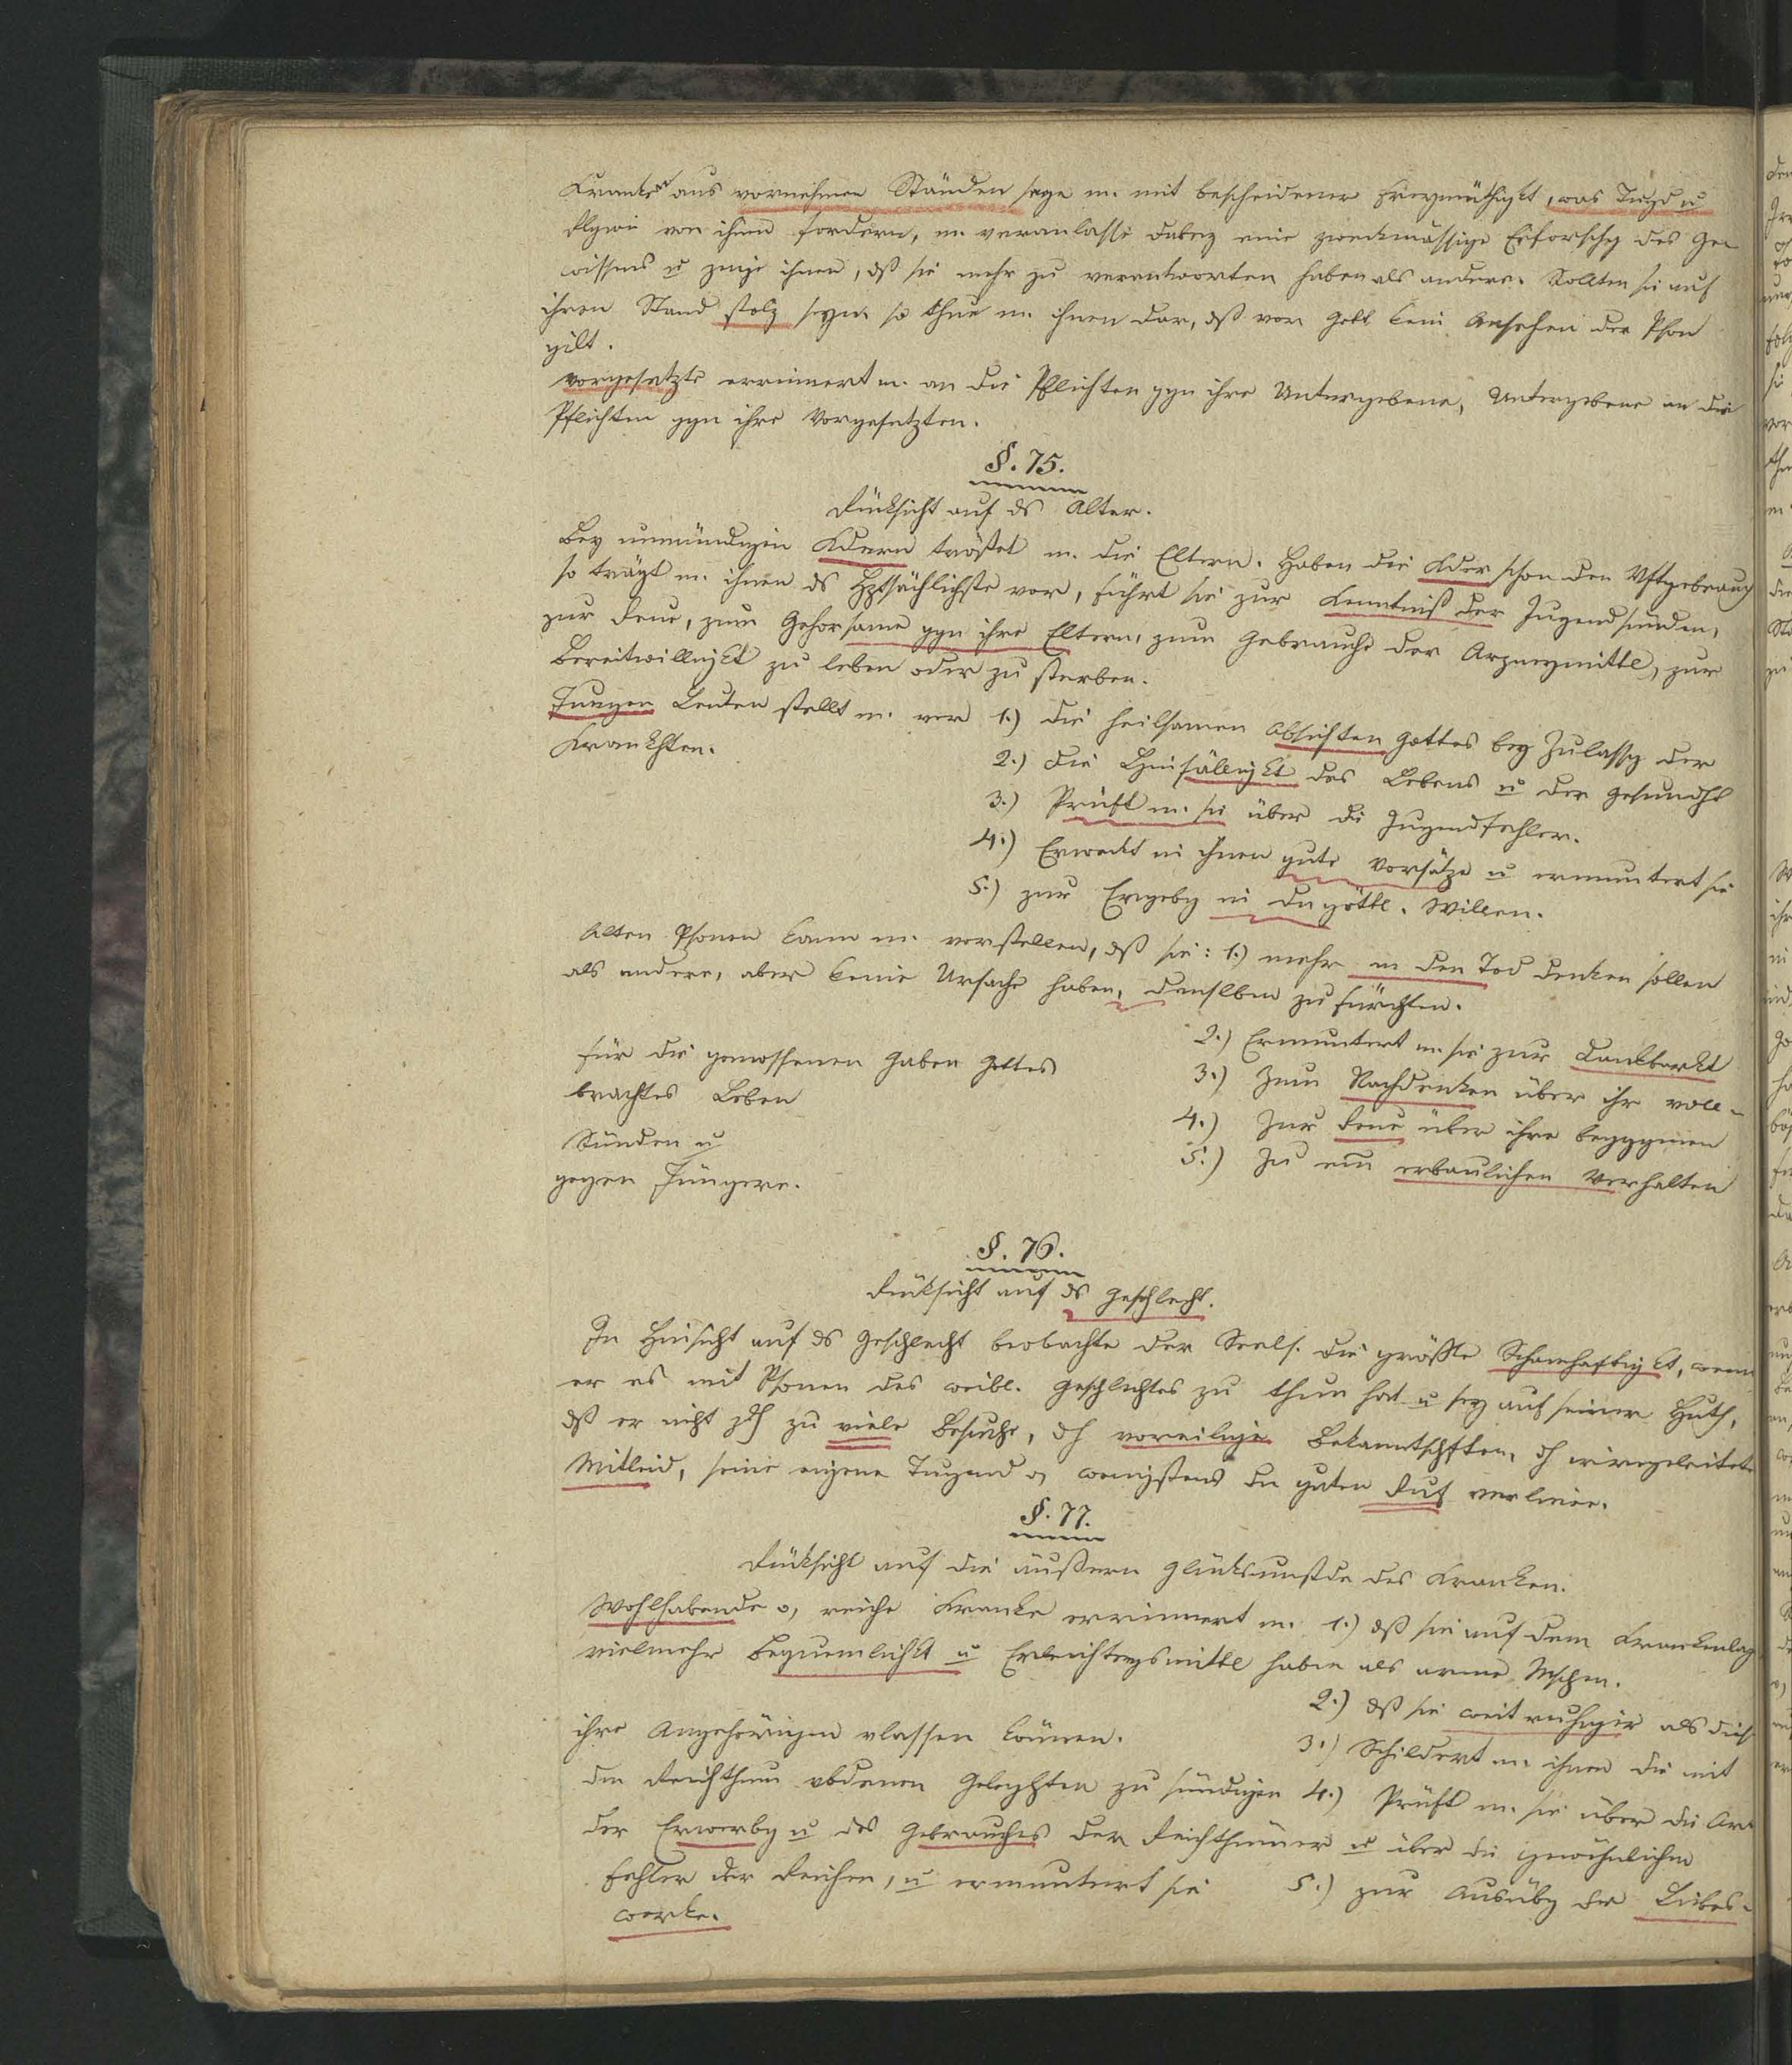 Kranken aus vornehmen Ständen sage m. mit bescheidener Freymüthigkt, was Tugd u
Rlgion von ihnen fordern, m. veranlasse dabey eine zweckmässige Erforschg des Ge-
wissens u zeige ihnen, dß sie mehr zu verantworten haben als andere. Sollten sie auf
ihren Stand stolz seyn so thue m. ihnen dar, dß vor Gott kein Ansehen der Pson
gilt.
Vorgesetzte errinnert m. an die Pflichten ggn ihre Untergebene, Untergebene an die
Pflichten ggn ihre Vorgesetzten.
§. 75.
Rücksicht auf ds Alter.
Bey unmündigen Kdern tröstet m. die Eltern. Haben die Kder schon den Vftgebrauch
so trägt m. ihnen ds Hptsächlichste vor, führt sie zur Kenntniß der Jugendsünden,
zur Reue, zum Gehorsame ggn ihre Eltern, zum Gebrauche der Arzneymittl, zur
Bereitwilligkt zu leben oder zu sterben.
Jungen Leuten stellt m. vor 1.) die heilsamen Absichten Gottes bey Zulassg der
Krankhten.
2.) die Hinfälligkt des Lebens u der Gesundht
3.) Prüft m. sie über die Jugendfehler.
4.) Erweckt in ihnen gute Vorsätze u ermuntert sie
5.) zur Ergebg in den göttl. Willen.
Alten Psonen kann m. vorstellen, dß sie: 1.) mehr an den Tod denken sollen
als andere, aber keine Ursache haben, denslben zu fürchten.
2.) Ermuntert m. sie zur Dankbarkt
für die genossenen Gaben Gottes
3.) Zum Nachdenken über ihr voll-
brachtes Leben
4.) Zur Reue über ihre beggngenen
Sünden u
5.) Zu einem erbaulichen Verhalten
gegen Jüngere.
§. 76.
Rücksicht auf ds Geschlecht.
In Hinsicht auf ds Geschlecht beobachte der Seels. die größte Schamhaftigkt, wenn
er es mit Psonen des weibl. Geschlechtes zu thun hat u sey auf seiner Huth,
dß er nicht dch zu viele Besuche, dch voreilige Bekanntschften, dch irregeleitete
Mitleid, seine eigene Tugend o, wenigstens den guten Ruf verliere.
§. 77.
Rücksicht auf die äußern Glücksumstde des Kranken.
Wohlhabende o, reiche Kranke errinnert m. 1.) dß sie auf dem Krankenlag
vielmehr Bequemlichkt u Erleichtrgsmittl haben als arme Mschen.
2.) dß sie weit ruhiger als diese
ihre Angehörigen vlassen können.
3.) Schildert m. ihnen die mit
dem Reichthum vbdenen Gelegnhten zu sündigen 4.) Prüft m. sie über die Art
der Erwerbg u des Gebrauches der Reichthümer u über die gewöhnlichen
Fehler der Reichen, u ermuntert sie 5.) zur Ausübg der Liebes-
werke.